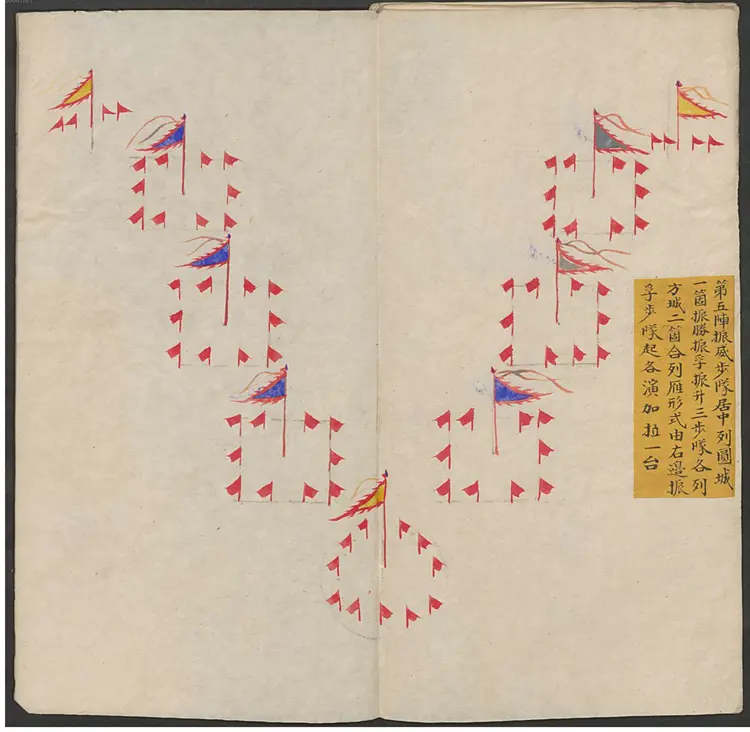 第五陣振威步隊居中列圓城
一箇振勝振孚振升三步隊各列
方城二箇合列雁形式由右邊振
孚步隊起各演加拉一台